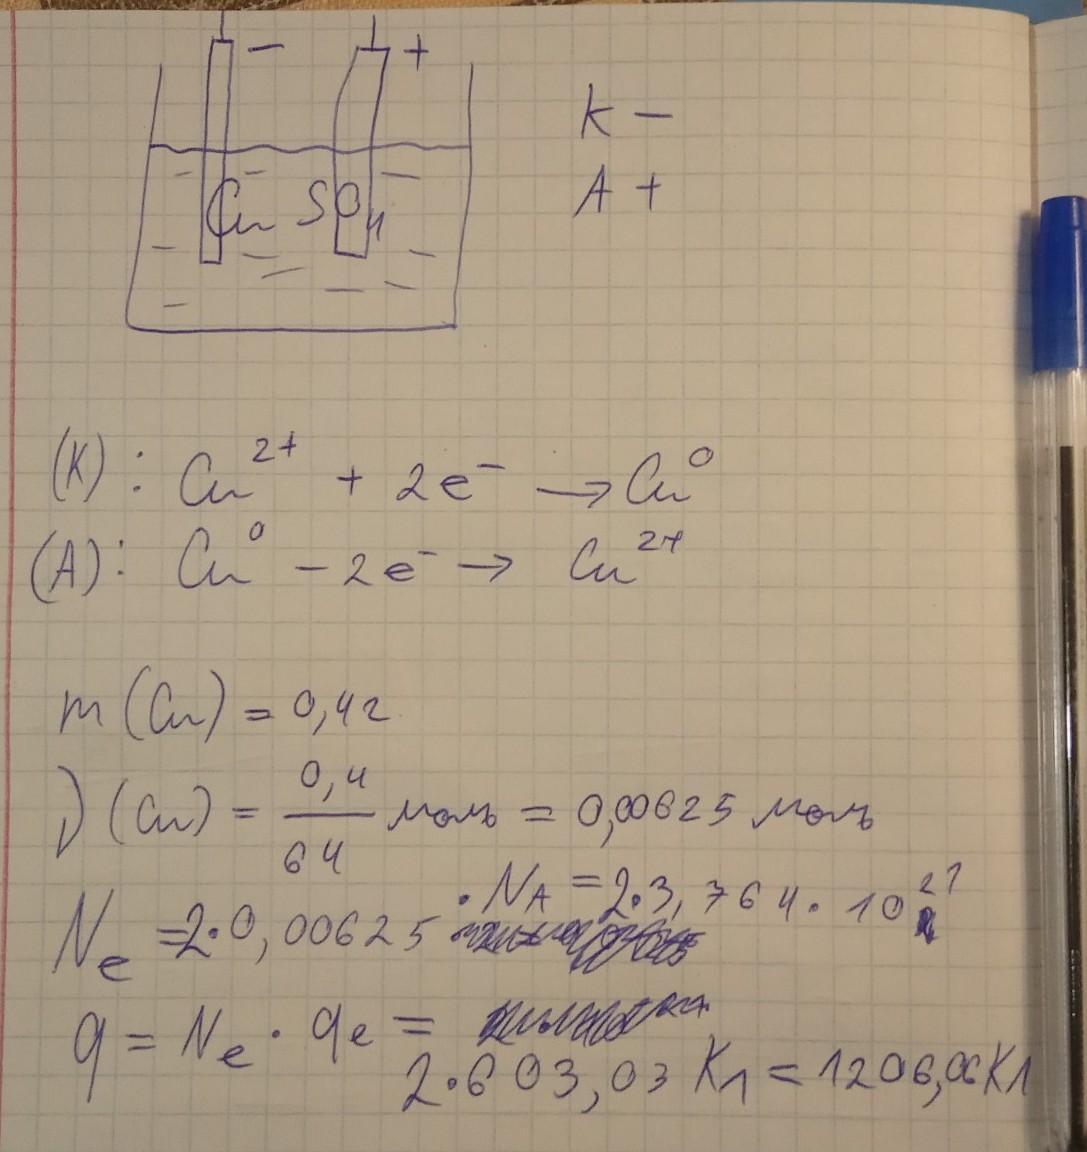 −
+
K −
CuSO₄
A +
(K): Cu²⁺ + 2e⁻ → Cu⁰
(A): Cu⁰ − 2e⁻ → Cu²⁺
m(Cu) = 0,4г
ν(Cu) = 0,4/64 моль = 0,00625 моль
Nₑ = 2·0,00625 · N_A = 2·3,764·10²¹
q = Nₑ · qₑ =
2·603,03 Кл = 1206,06 Кл